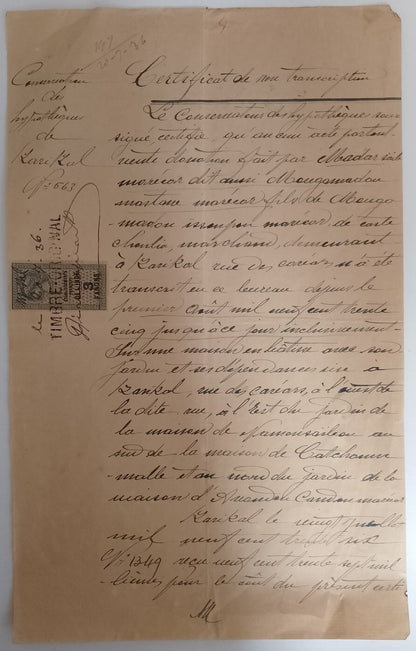 Certificat de non transcription
Conservation
de
hypothèque
de
Karikal
Nº 563
Le Conservateur des hypothèques sous
signé certifie, qu'aucun acte portant
vente donation fait par Madar saib
marécar dit aussi Mougamadou
maslane marécar fils de Mouga
madou marécar, de caste
choulia, marchand, demeurant
à Karikal rue des n'a été
transcrit en ce bureau depuis le
premier août mil neuf cent trente
cinq jusqu'à ce jour inclusivement
Sur une maison en bâtine avec son
jardin et ses dépendances sise à
Karikal, rue des à l'ouest de
la dite rue, à l'Est du jardin de
la maison de au
sud de la maison de
malle et au nord du jardin de la
maison d' marécar
Karikal le vingt
mil neuf cent trente six
Nº 1349 reçu neuf cent trente sept mil
lièmes pour le coût du présent certi
TIMBRE COLONIAL
3